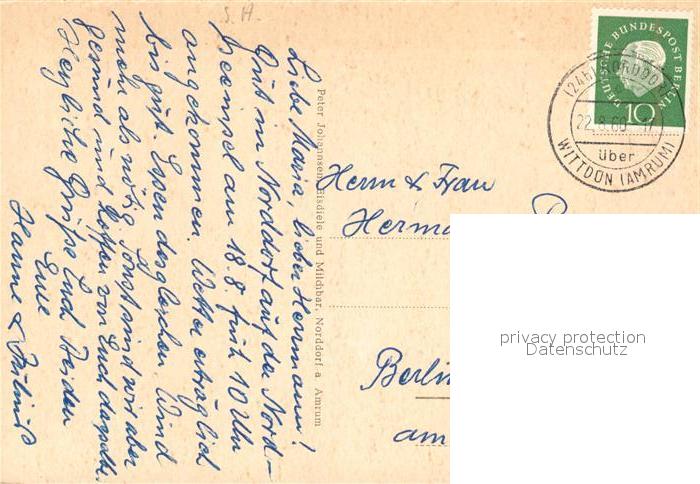 S. H.
Liebe Maria, lieber Hermann!
Gut in Norddorf auf der Nord-
seeinsel am 18.8. früh 10 Uhr
angekommen. Wetter erträglich
bis gut. Essen desgleichen. Wind
mehr als nötig. Sonst sind wir aber
gesund und hoffen von Euch dasselbe.
Herzliche Grüße Euch beiden
Eure
Hanne &
Peter Johannsen, Eisdiele und Milchbar, Norddorf a Amrum
DEUTSCHE BUNDESPOST BERLIN
10
(24b) NORDDORF
22.8.60
über
WITTDÜN (AMRUM)
Herrn & Frau
Herma
Berlin
am
privacy protection
Datenschutz